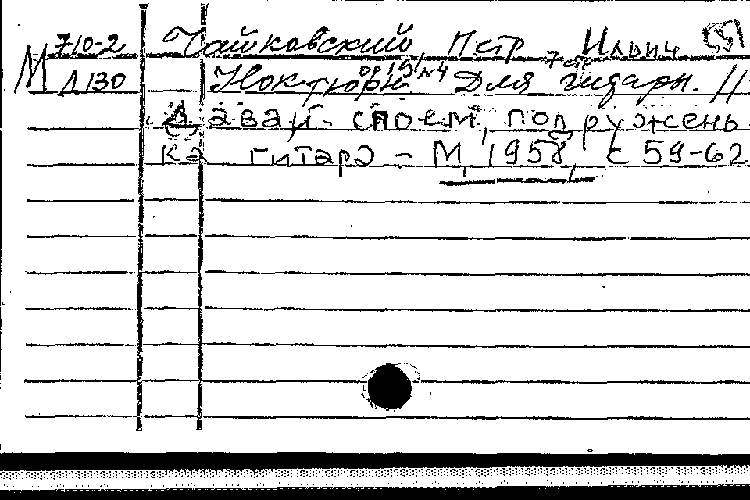 М 710-2 Чайковский, Петр Ильич
Д 130 Ноктюрн ор 19, №4 Для 7стр гитары. //
Давай - споем, подружень-
ка гитара - М, 1958, с 59-62